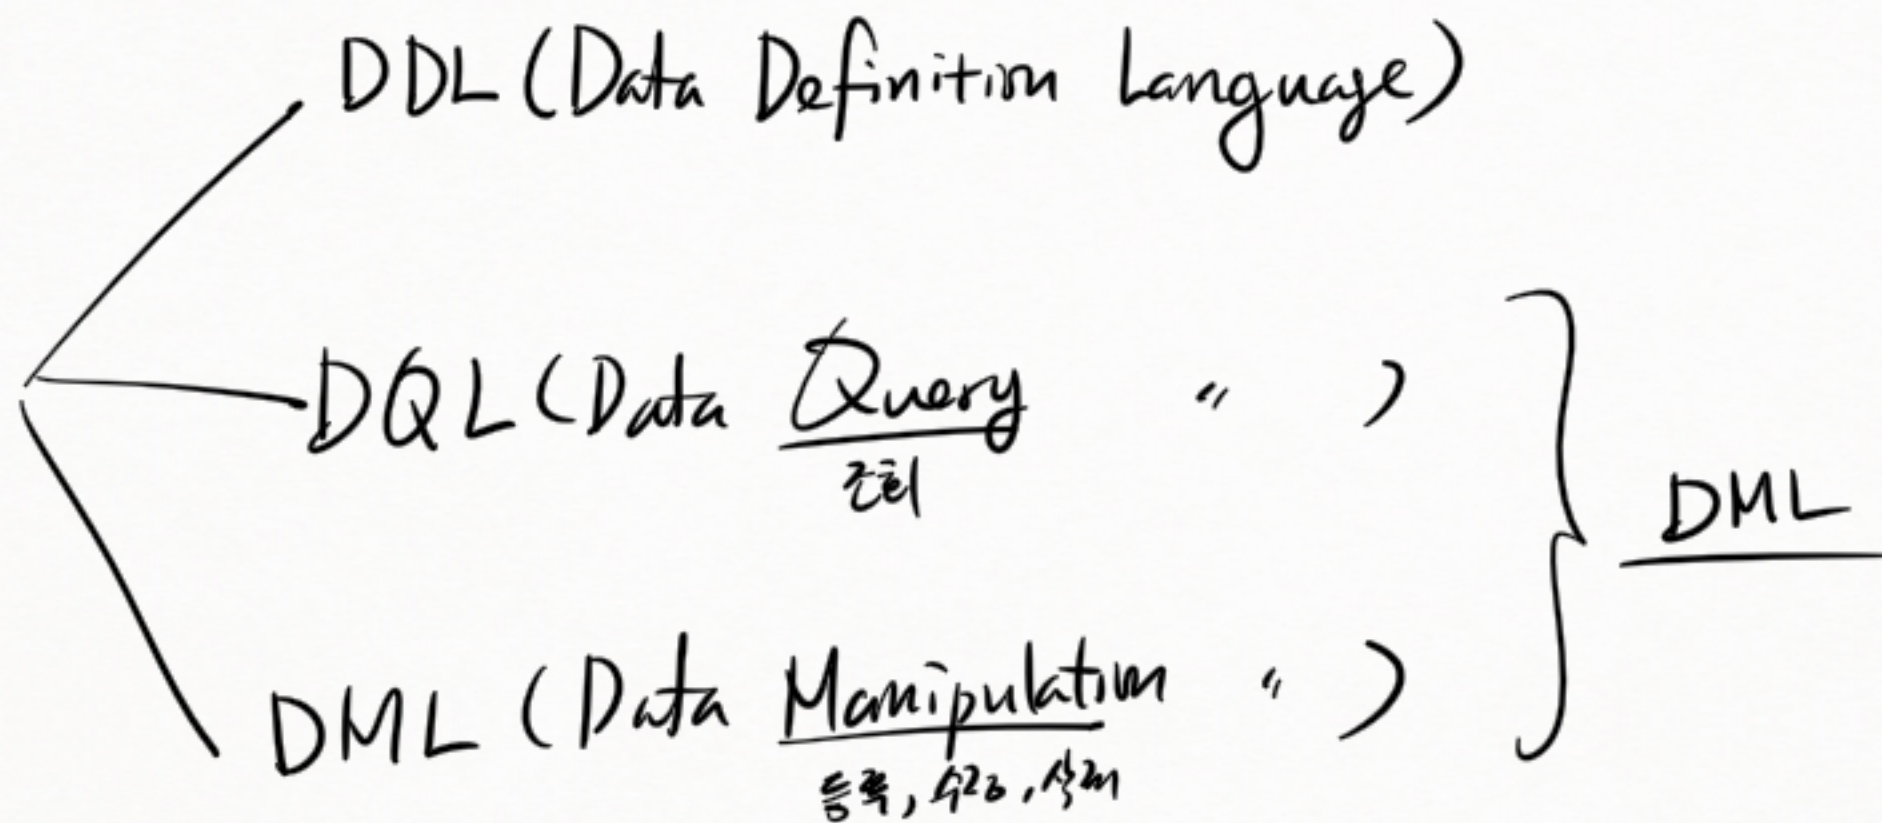 DDL (Data Definition Language)
DQL (Data Query 〃 )
조회
DML
DML (Data Manipulation 〃 )
등록, 수정, 삭제